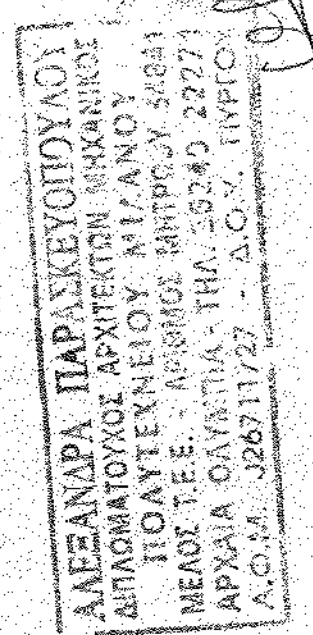 ΑΛΕΞΑΝΔΡΑ ΠΑΡΑΣΚΕΥΟΠΟΥΛΟΥ
ΔΙΠΛΩΜΑΤΟΥΧΟΣ ΑΡΧΙΤΕΚΤΩΝ ΜΗΧΑΝΙΚΟΣ
ΠΟΛΥΤΕΧΝΕΙΟΥ ΜΙΛΑΝΟΥ
ΜΕΛΟΣ Τ.Ε.Ε. - ΑΡΙΘΜΟΣ ΜΗΤΡΩΟΥ
ΑΡΧΑΙΑ ΟΛΥΜΠΙΑ - ΤΗΛ. 26240 22271
Α.Φ.Μ. - Δ.Ο.Υ. ΠΥΡΓΟΥ